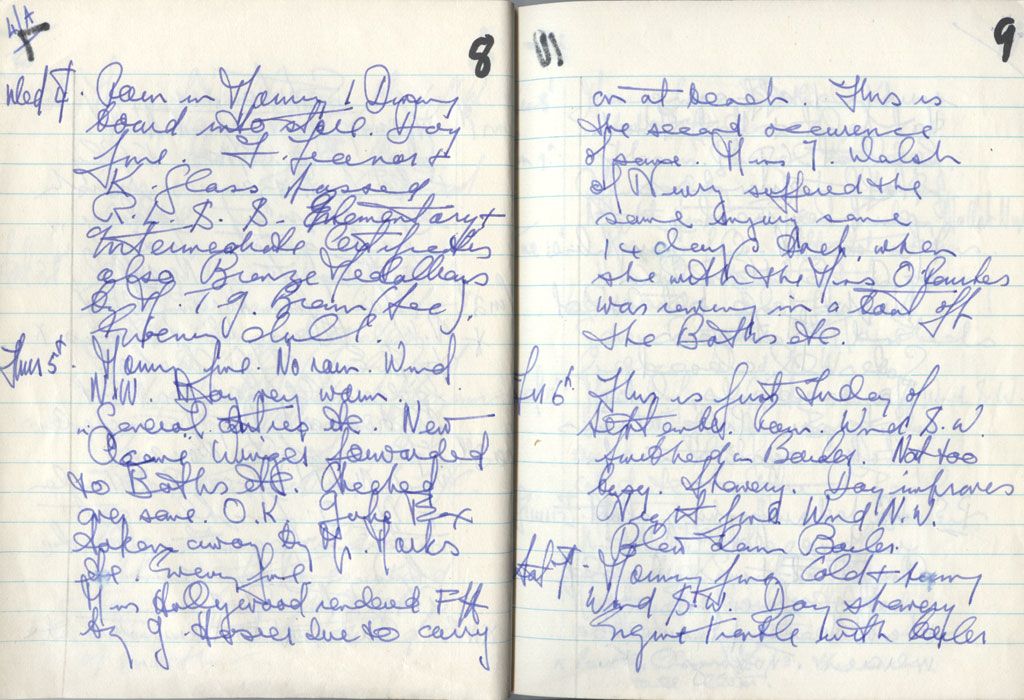 8
Wed 4. Rain in Morning 1 Diving
board into store. Day
fine. F. &
K. Glass passed
R.L.S.S. Elementary +
Intermediate Certificates
also Bronze Medallions
by Mr. T.G. (Sec).
Evening dull.
Thurs 5th. Morning fine. No rain. Wind
N.W. Day very warm.
General duties etc. New
forwarded
to Baths etc. Checked
over same. O.K.
taken away by Mr. Parks
etc. Evening fine.
Miss Hollywood rendered F. Aid
by J. due to
9
on at beach. This is
the second occurence
of same. Miss T. Walsh
of Newry suffered the
same injury some
14 days back, when
she with the Miss
was rowing in a boat off
the Baths etc.
Fri 6th. This is first Friday of
September. Rain. Wind S.W.
Boiler. Not too
busy. Showery. Day improves
Night fine. Wind N.W.
Blew down Boiler.
Sat 7. Morning fine Cold + sunny
Wind S.W. Day showery
trouble with boiler